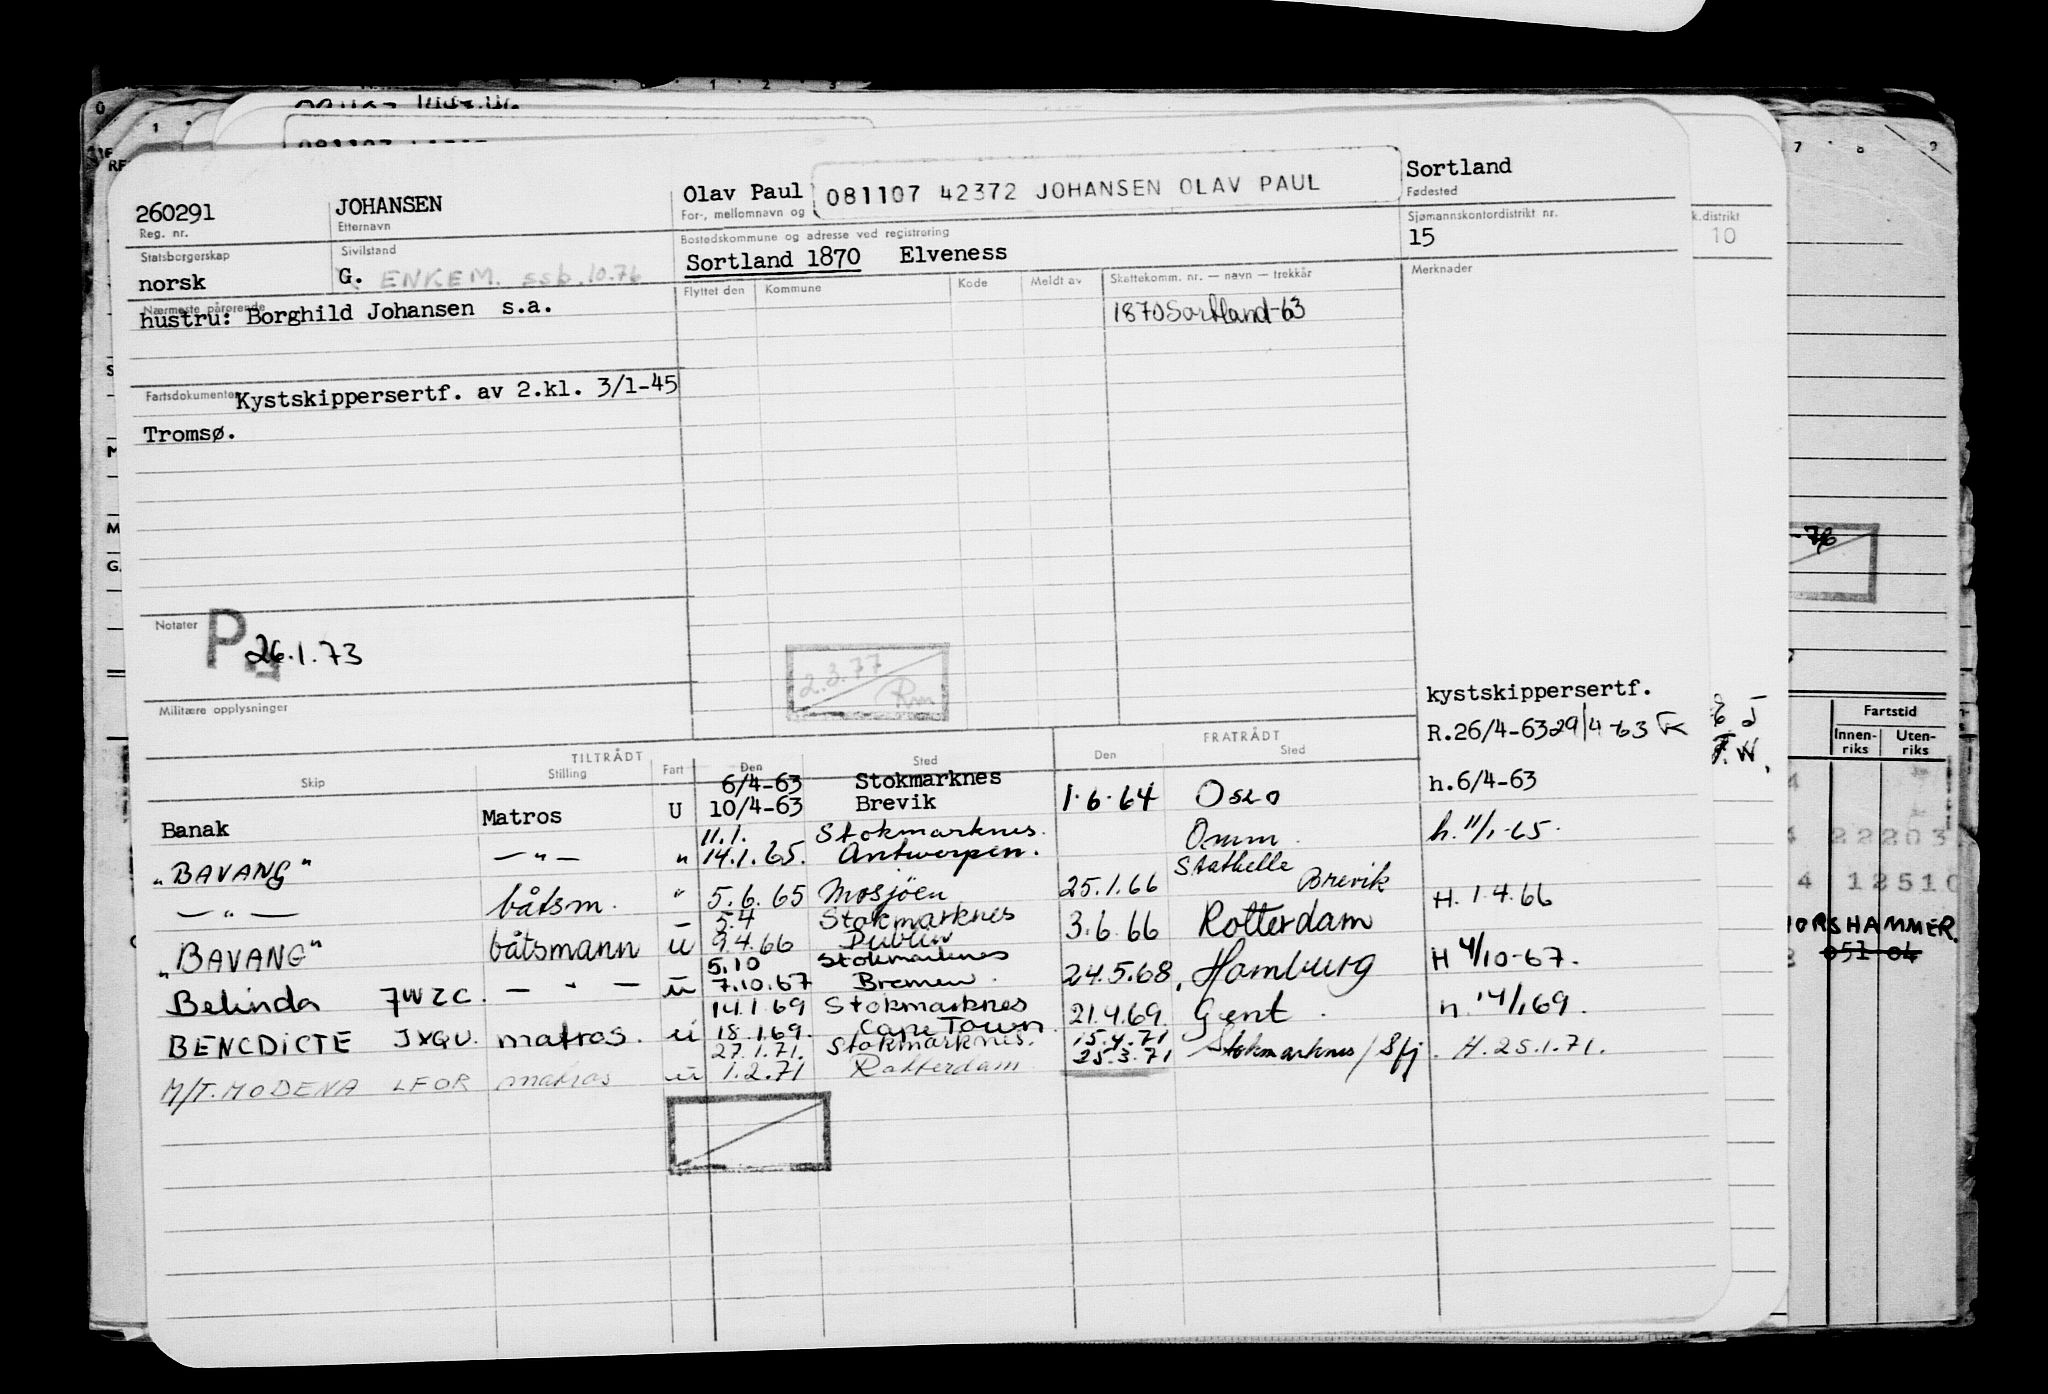 260291 JOHANSEN Olav Paul 081107 42372 JOHANSEN OLAV PAUL Sortland
Reg. nr. Etternavn For-, mellomnavn og Fødested
Statsborgerskap Sivilstand Bostedskommune og adresse ved registrering Sjømannskontordistrikt nr. k.distrikt
norsk G. ENKEM. ssb.10.76 Sortland 1870 Elveness 15 10
Nærmeste pårørende Flyttet den Kommune Kode Meldt av Skattekomm. nr. — navn — trekkår Merknader
hustru: Borghild Johansen s.a. 1870 Sortland-63
Fartsdokumenter Kystskippersertf. av 2.kl. 3/1-45
Tromsø.
Notater P 26.1.73
2.3.77
Rm
Militære opplysninger
kystskippersertf.
R.26/4-63 29/4-63
TILTRÅDT FRATRÅDT
Skip Stilling Fart Den Sted Den Sted
6/4-63 Stokmarknes h.6/4-63
Banak Matros U 10/4-63 Brevik 1.6.64 Oslo
11.1. Stokmarknes. h. 11/1-65.
"BAVANG" —"— " 14.1.65. Antwerpen. Omm.
Stathelle
—"— båtsm. " 5.6.65 Mosjöen 25.1.66 Brevik H. 1.4.66
5.4 Stokmarknes
"BAVANG" båtsmann U 9.4.66 Dublin 3.6.66 Rotterdam
5.10 Stokmarknes H 4/10-67.
Belinda JWZC. —"— U 7.10.67 Bremen. 24.5.68, Hamburg
14.1.69 Stokmarknes h. 14/1.69.
BENEDICTE JXQU. matros. U 18.1.69. Cape Town. 21.4.69. Gent.
27.1.71. Stokmarknes. 15.4.71
M/T. MODENA LFOR matros U 1.2.71 Rotterdam 25.3.71 Stokmarknes / Sfj. H. 25.1.71.
7 8 9
-76
Fartstid
Innen-riks Uten-riks
22203
4 12510
HORSHAMMER.
051 04